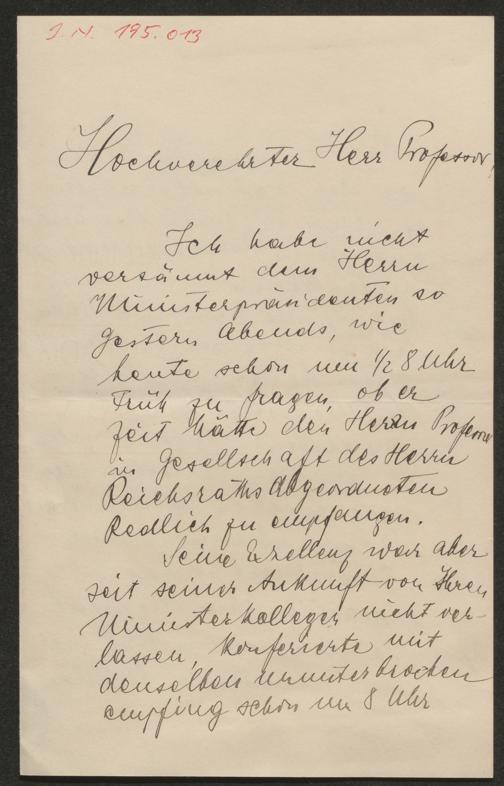 J.N. 195.013
Hochverehrter Herr Professor,
Ich habe nicht
versäumt dem Herrn
Ministerpräsidenten so
gestern Abends, wie
heute schon um 1/2 8 Uhr
Früh zu fragen, ob er
Zeit hätte den Herrn Professor
in Gesellschaft des Herrn
Reichsraths Abgeordneten
Redlich zu empfangen.
Seine Exellenz war aber
seit seiner Ankunft von Ihren
Ministerkollegen nicht ver-
lassen, konferierte mit
denselben ununterbrochen
empfing schon um 8 Uhr